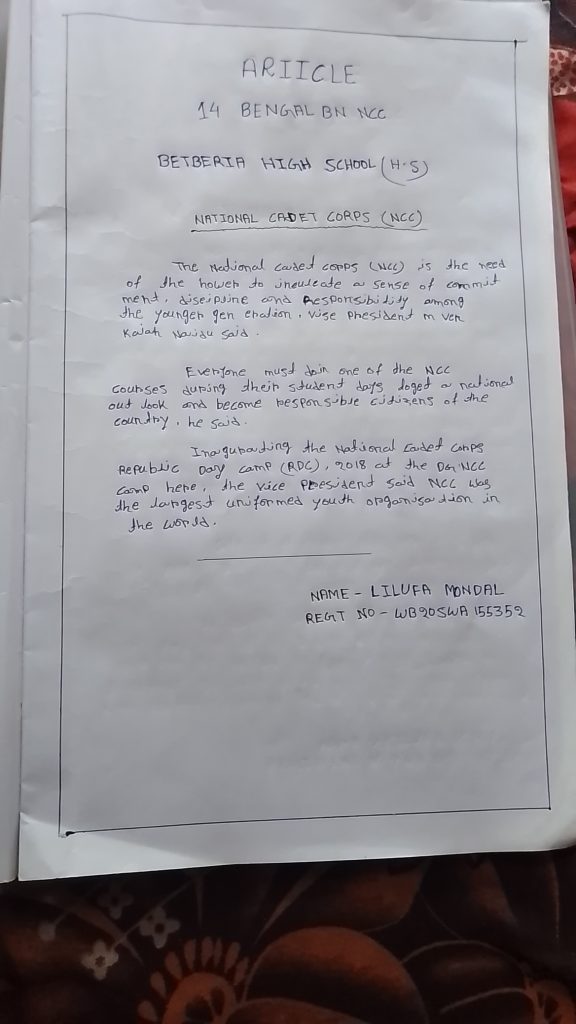 ARIICLE
14 BENGAL BN NCC
BETBERIA HIGH SCHOOL (H.S)
NATIONAL CADET CORPS (NCC)
The National caded corps (NCC) is the need
of the hower to inculcate a sense of commit
ment, diseipline and Responsibility among
the younger gen eration, vise president m ven
Kaiah Naidu said.
Everyone must join one of the NCC
courses during their student days doged a national
out look and become responsible citizens of the
country, he said.
Inagurating the National Caded Corps
Republic Day camp (RDC), 2018 at the DG NCC
Camp here, the vice president said NCC was
the largest uniformed youth organisation in
the world.
NAME - LILUFA MONDAL
REGT NO - WB20SWA155352